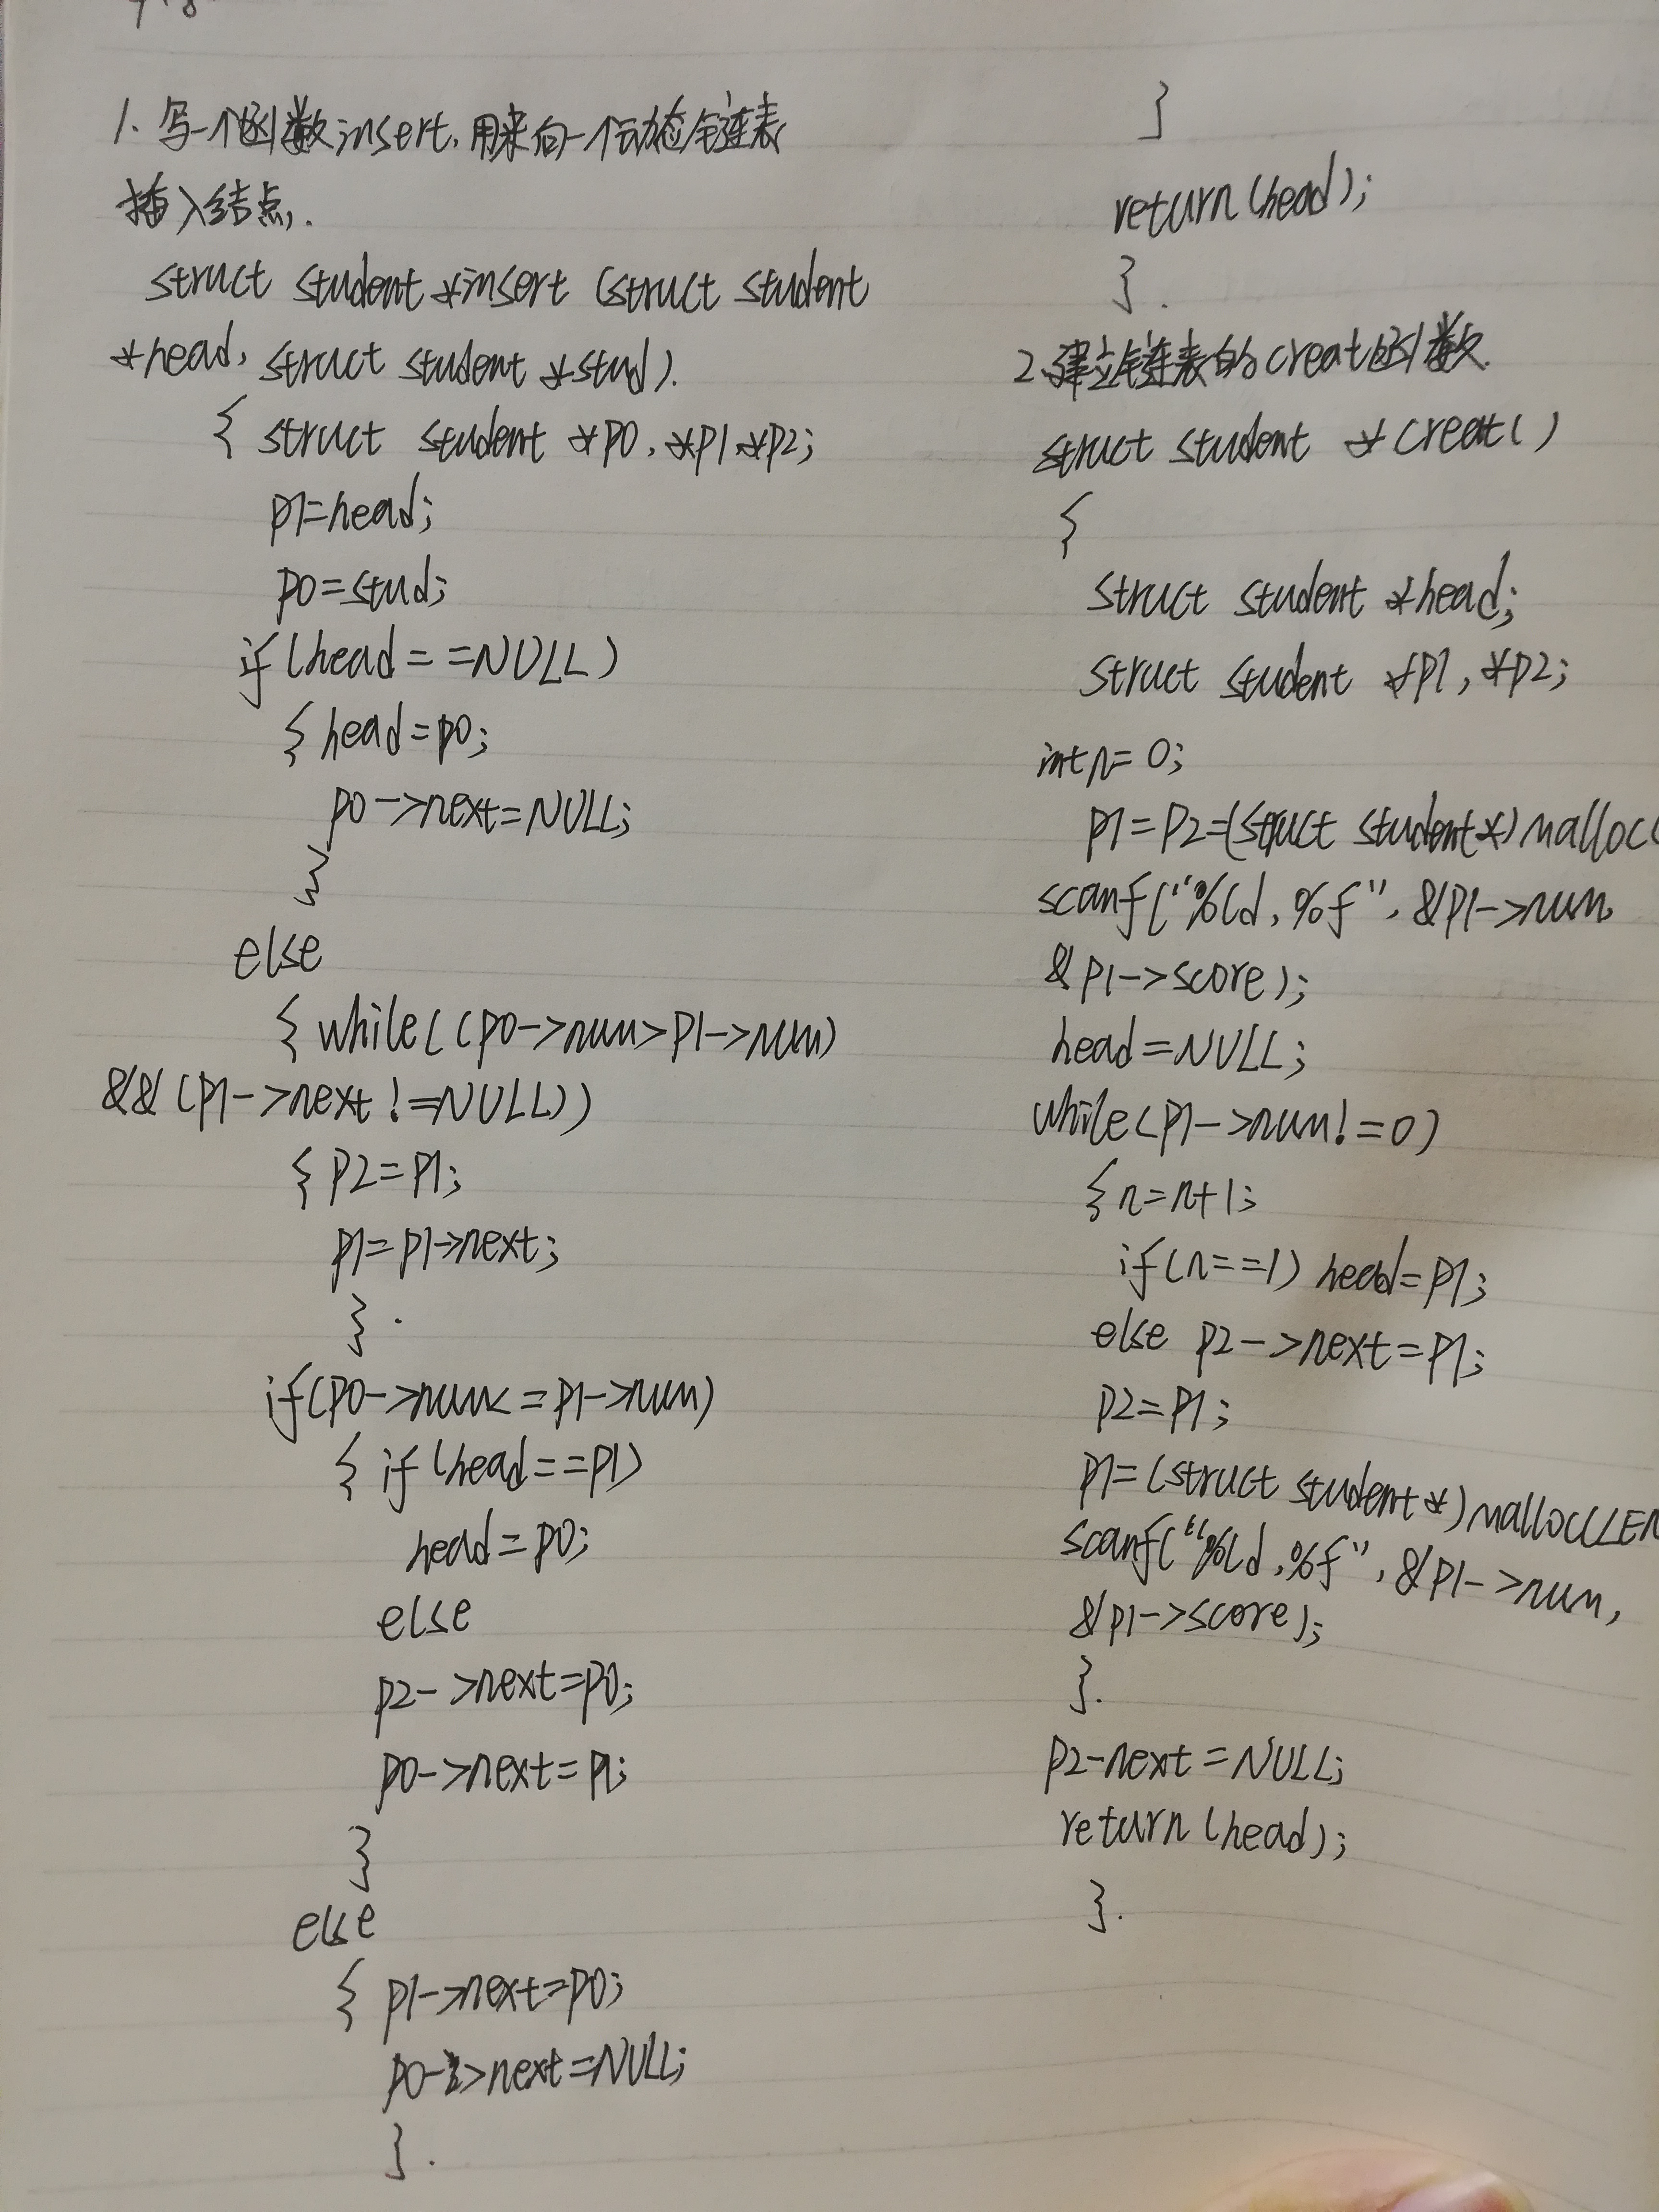 1. 写一个函数insert, 用来向一个动态链表
插入结点.
struct student *insert (struct student
*head, struct student *stud).
{ struct student *p0, *p1, *p2;
p1=head;
p0=stud;
if (head = =NULL)
{ head=p0;
p0->next=NULL;
}
else
{ while((p0->num>p1->num)
&& (p1->next !=NULL))
{ p2=p1;
p1=p1->next;
}.
if(p0->num<=p1->num)
{ if (head==p1)
head=p0;
else
p2->next=p0;
p0->next=p1;
}
else
{ p1->next=p0;
p0->next=NULL;
}.
}
return (head);
}.
2.建立链表的creat函数.
struct student *creat()
{
struct student *head;
struct student *p1, *p2;
int n=0;
p1=p2=(struct student*)malloc(
scanf("%ld,%f", &p1->num,
&p1->score);
head=NULL;
while(p1->num!=0)
{ n=n+1;
if(n==1) head=p1;
else p2->next=p1;
p2=p1;
p1=(struct student*)malloc(LEN
scanf("%ld,%f", &p1->num,
&p1->score);
}.
p2-next=NULL;
return (head);
}.